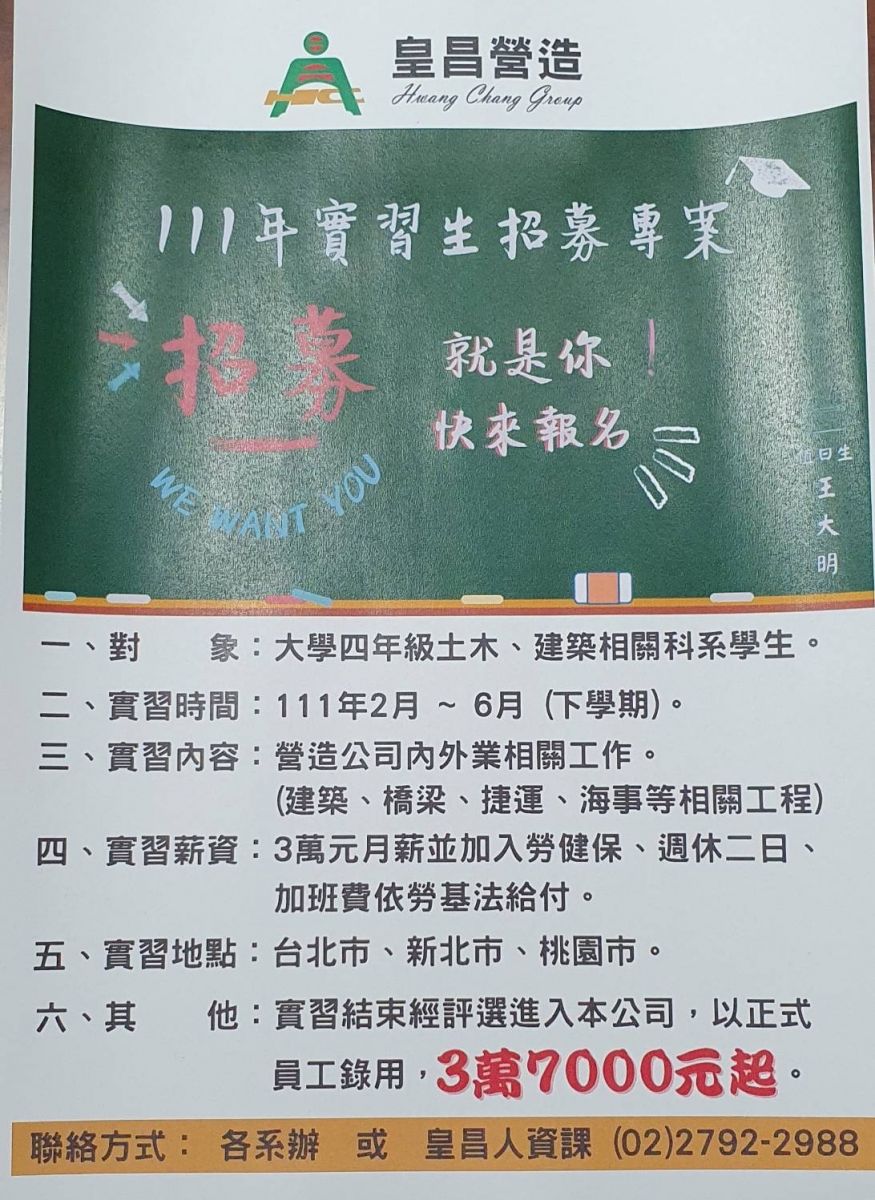 皇昌營造
HCC
Hwang Chang Group
111年實習生招募專案
招募
就是你!
快來報名
WE WANT YOU
值日生
王大明
一、對 象：大學四年級土木、建築相關科系學生。
二、實習時間：111年2月 ~ 6月 (下學期)。
三、實習內容：營造公司內外業相關工作。
(建築、橋梁、捷運、海事等相關工程)
四、實習薪資：3萬元月薪並加入勞健保、週休二日、
加班費依勞基法給付。
五、實習地點：台北市、新北市、桃園市。
六、其 他：實習結束經評選進入本公司，以正式
員工錄用，3萬7000元起。
聯絡方式： 各系辦 或 皇昌人資課 (02)2792-2988